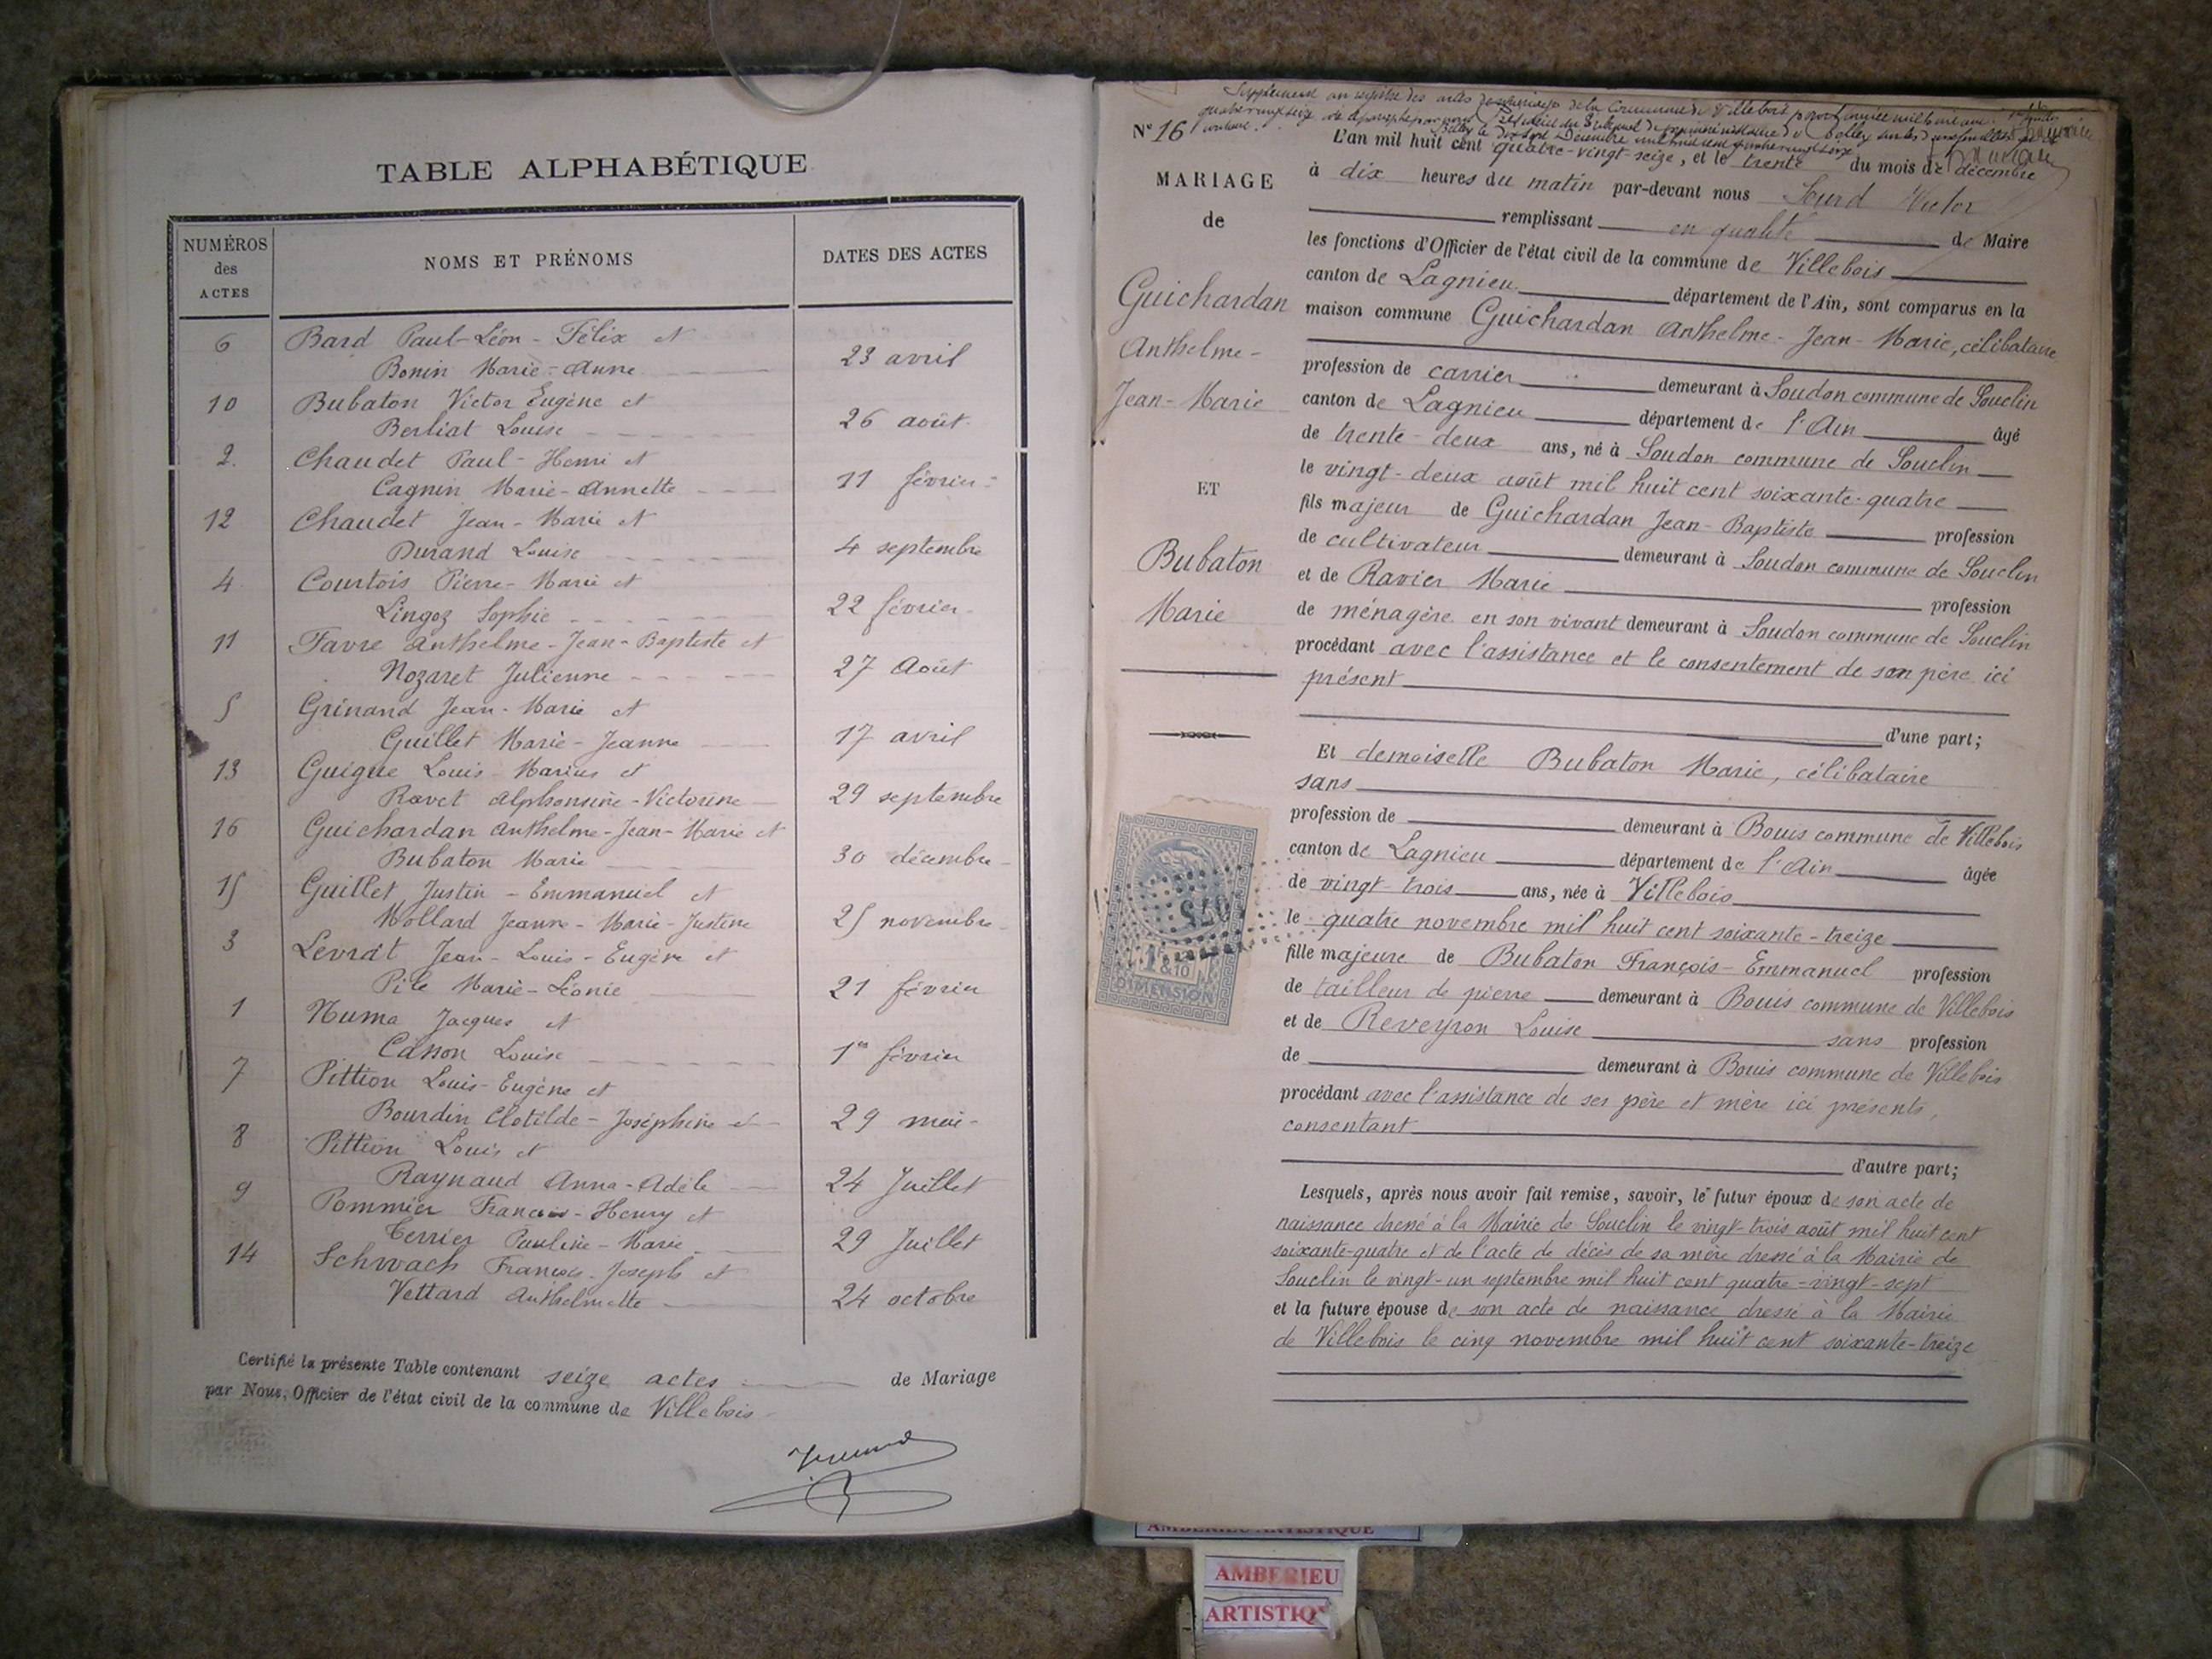 TABLE ALPHABÉTIQUE
NUMÉROS des ACTES
NOMS ET PRÉNOMS
DATES DES ACTES
6 Bard Paul-Léon-Félix et
Bonin Marie-Anne 23 avril
10 Bubaton Victor Eugène et
Berliat Louise 26 août
2. Chaudet Paul-Henri et
Cagnin Marie-Annette 11 février
12 Chaudet Jean-Marie et
Durand Louise 4 septembre
4 Courtois Pierre-Marie et
Lingoz Sophie 22 février
11 Favre Anthelme-Jean-Baptiste et
Nozaret Julienne 27 Août
5 Grinand Jean-Marie et
Guillet Marie-Jeanne 17 avril
13 Guigue Louis-Marius et
Ravet Alphonsine-Victorine 29 septembre
16 Guichardan Anthelme-Jean-Marie et
Bubaton Marie 30 décembre
15 Guillet Justin-Emmanuel et
Mollard Jeanne-Marie-Justine 25 novembre
3 Levrat Jean-Louis-Eugène et
Pile Marie-Léonie 21 février
1 Numa Jacques et
Canon Louise 1er février
7 Pittion Louis-Eugène et
Bourdin Clotilde-Joséphine 29 mai
8 Pittion Louis et
Raynaud Anna-Adèle 24 Juillet
9 Pommier François-Henry et
Terrier Pauline-Marie 29 Juillet
14 Schwach François-Joseph et
Vettard Anthelmette 24 octobre
Certifié la présente Table contenant seize actes de Mariage
par Nous, Officier de l'état civil de la commune de Villebois
Supplément au registre des actes de mariage de la Commune de Villebois pour l'année mil huit cent
N° 16
MARIAGE
de
Guichardan
Anthelme-
Jean-Marie
ET
Bubaton
Marie
L'an mil huit cent quatre-vingt-seize, et le trente du mois de décembre
à dix heures du matin par-devant nous Sourd Victor
remplissant en qualité de Maire
les fonctions d'Officier de l'état civil de la commune de Villebois
canton de Lagnieu département de l'Ain, sont comparus en la
maison commune Guichardan Anthelme-Jean-Marie, célibataire
profession de carrier demeurant à Soudon commune de Souclin
canton de Lagnieu département de l'Ain âgé
de trente-deux ans, né à Soudon commune de Souclin
le vingt-deux août mil huit cent soixante-quatre
fils majeur de Guichardan Jean-Baptiste profession
de cultivateur demeurant à Soudon commune de Souclin
et de Ravier Marie profession
de ménagère en son vivant demeurant à Soudon commune de Souclin
procédant avec l'assistance et le consentement de son père ici
présent
d'une part;
Et demoiselle Bubaton Marie, célibataire
sans
profession de demeurant à Bouis commune de Villebois
canton de Lagnieu département de l'Ain âgée
de vingt-trois ans, née à Villebois
le quatre novembre mil huit cent soixante-treize
fille majeure de Bubaton François-Emmanuel profession
de tailleur de pierre demeurant à Bouis commune de Villebois
et de Reveyron Louise sans profession
de demeurant à Bouis commune de Villebois
procédant avec l'assistance de ses père et mère ici présents,
consentant
d'autre part;
Lesquels, après nous avoir fait remise, savoir, le futur époux de son acte de
naissance dressé à la Mairie de Souclin le vingt-trois août mil huit cent
soixante-quatre et de l'acte de décès de sa mère dressé à la Mairie de
Souclin le vingt-un septembre mil huit cent quatre-vingt-sept
et la future épouse de son acte de naissance dressé à la Mairie
de Villebois le cinq novembre mil huit cent soixante-treize
1 & 10
DIMENSION
AMBERIEU ARTISTIQUE
AMBERIEU
ARTISTIQ